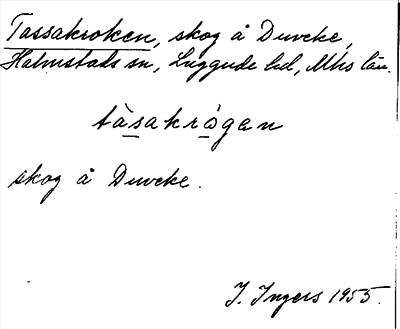 Tassakroken, skog å Duveke,
Halmstads sn, Luggude hd, Mhs län.
tàsakrågen
skog å Duveke.
I. Ingers 1955.